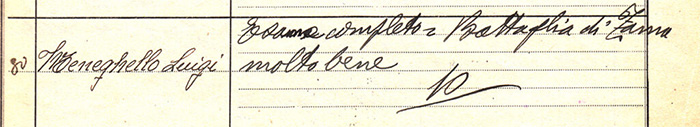 Esame completo = Battaglia di Zama
80 Meneghello Luigi molto bene
10